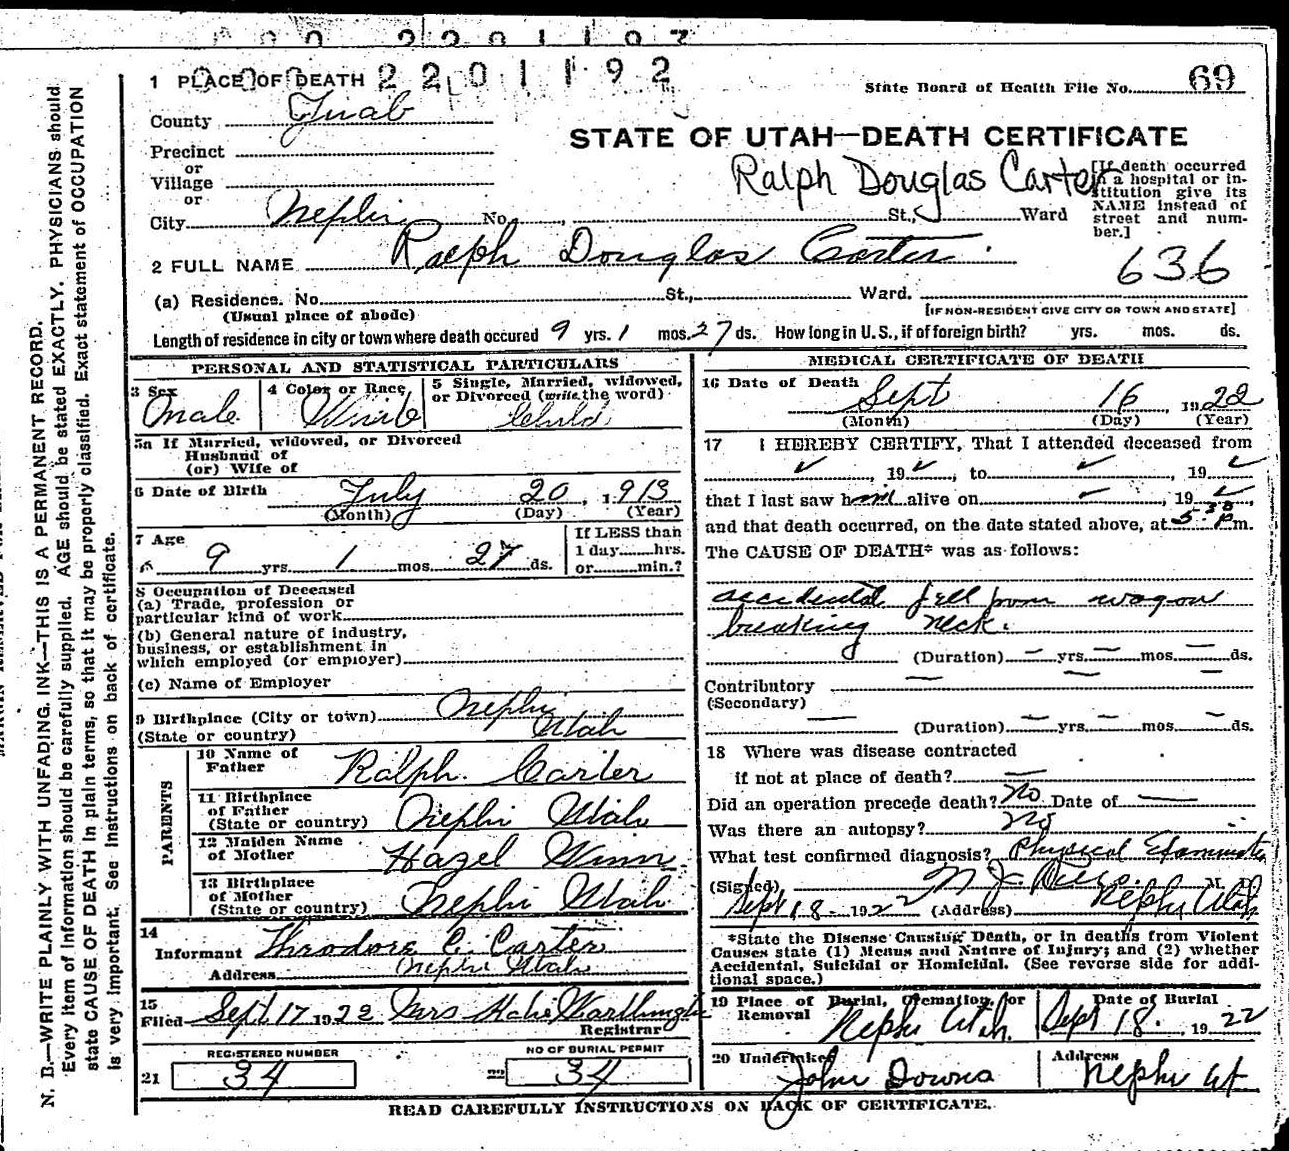 2201192
1 PLACE OF DEATH
State Board of Health File No. 69
County Juab
STATE OF UTAH—DEATH CERTIFICATE
Precinct
or
Village
or
Ralph Douglas Carter
[If death occurred in a hospital or institution give its NAME instead of street and number.]
City Nephi No. , St., Ward
2 FULL NAME Ralph Douglas Carter
636
(a) Residence. No. St., Ward.
(Usual place of abode)
[IF NON-RESIDENT GIVE CITY OR TOWN AND STATE]
Length of residence in city or town where death occured 9 yrs. 1 mos. 27 ds. How long in U.S., if of foreign birth? yrs. mos. ds.
PERSONAL AND STATISTICAL PARTICULARS
3 Sex
Male
4 Color or Race
5 Single, Married, widowed,
or Divorced (write the word)
Child
5a If Married, widowed, or Divorced
Husband of
(or) Wife of
6 Date of Birth July 20, 1913
(Month) (Day) (Year)
7 Age
9 yrs. 1 mos. 27 ds.
If LESS than
1 day......hrs.
or......min.?
8 Occupation of Deceased
(a) Trade, profession or
particular kind of work
(b) General nature of industry,
business, or establishment in
which employed (or employer)
(c) Name of Employer
9 Birthplace (City or town) Nephi
(State or country) Utah
PARENTS
10 Name of
Father Ralph Carter
11 Birthplace
of Father
(State or country) Nephi Utah
12 Maiden Name
of Mother Hazel Winn
13 Birthplace
of Mother
(State or country) Nephi Utah
14
Informant Theodore C. Carter
Address Nephi Utah
15
Filed Sept 17 1922 Mrs
Registrar
REGISTERED NUMBER
21 34
NO OF BURIAL PERMIT
22 34
MEDICAL CERTIFICATE OF DEATH
16 Date of Death Sept 16, 1922
(Month) (Day) (Year)
17 I HEREBY CERTIFY, That I attended deceased from
✓, 19✓, to ✓, 19✓
that I last saw him alive on ✓, 19✓
and that death occurred, on the date stated above, at 5-30 P m.
The CAUSE OF DEATH* was as follows:
accidental fell from wagon
breaking neck.
(Duration) — yrs. — mos. — ds.
Contributory
(Secondary)
(Duration) — yrs. — mos. — ds.
18 Where was disease contracted
if not at place of death? —
Did an operation precede death? No Date of —
Was there an autopsy? No
What test confirmed diagnosis? Physical Examination
(Signed) M.
Sept 18 1922 (Address) Nephi Utah
*State the Disease Causing Death, or in deaths from Violent
Causes state (1) Means and Nature of Injury; and (2) whether
Accidental, Suicidal or Homicidal. (See reverse side for addi-
tional space.)
19 Place of Burial, Cremation, or
Removal Nephi Utah.
Date of Burial
Sept 18. 1922
20 Undertaker
John Downs
Address
Nephi Ut
READ CAREFULLY INSTRUCTIONS ON BACK OF CERTIFICATE.
N. B.—WRITE PLAINLY WITH UNFADING INK—THIS IS A PERMANENT RECORD.
Every item of information should be carefully supplied. AGE should be stated EXACTLY. PHYSICIANS should
state CAUSE OF DEATH in plain terms, so that it may be properly classified. Exact statement of OCCUPATION
is very important. See instructions on back of certificate.